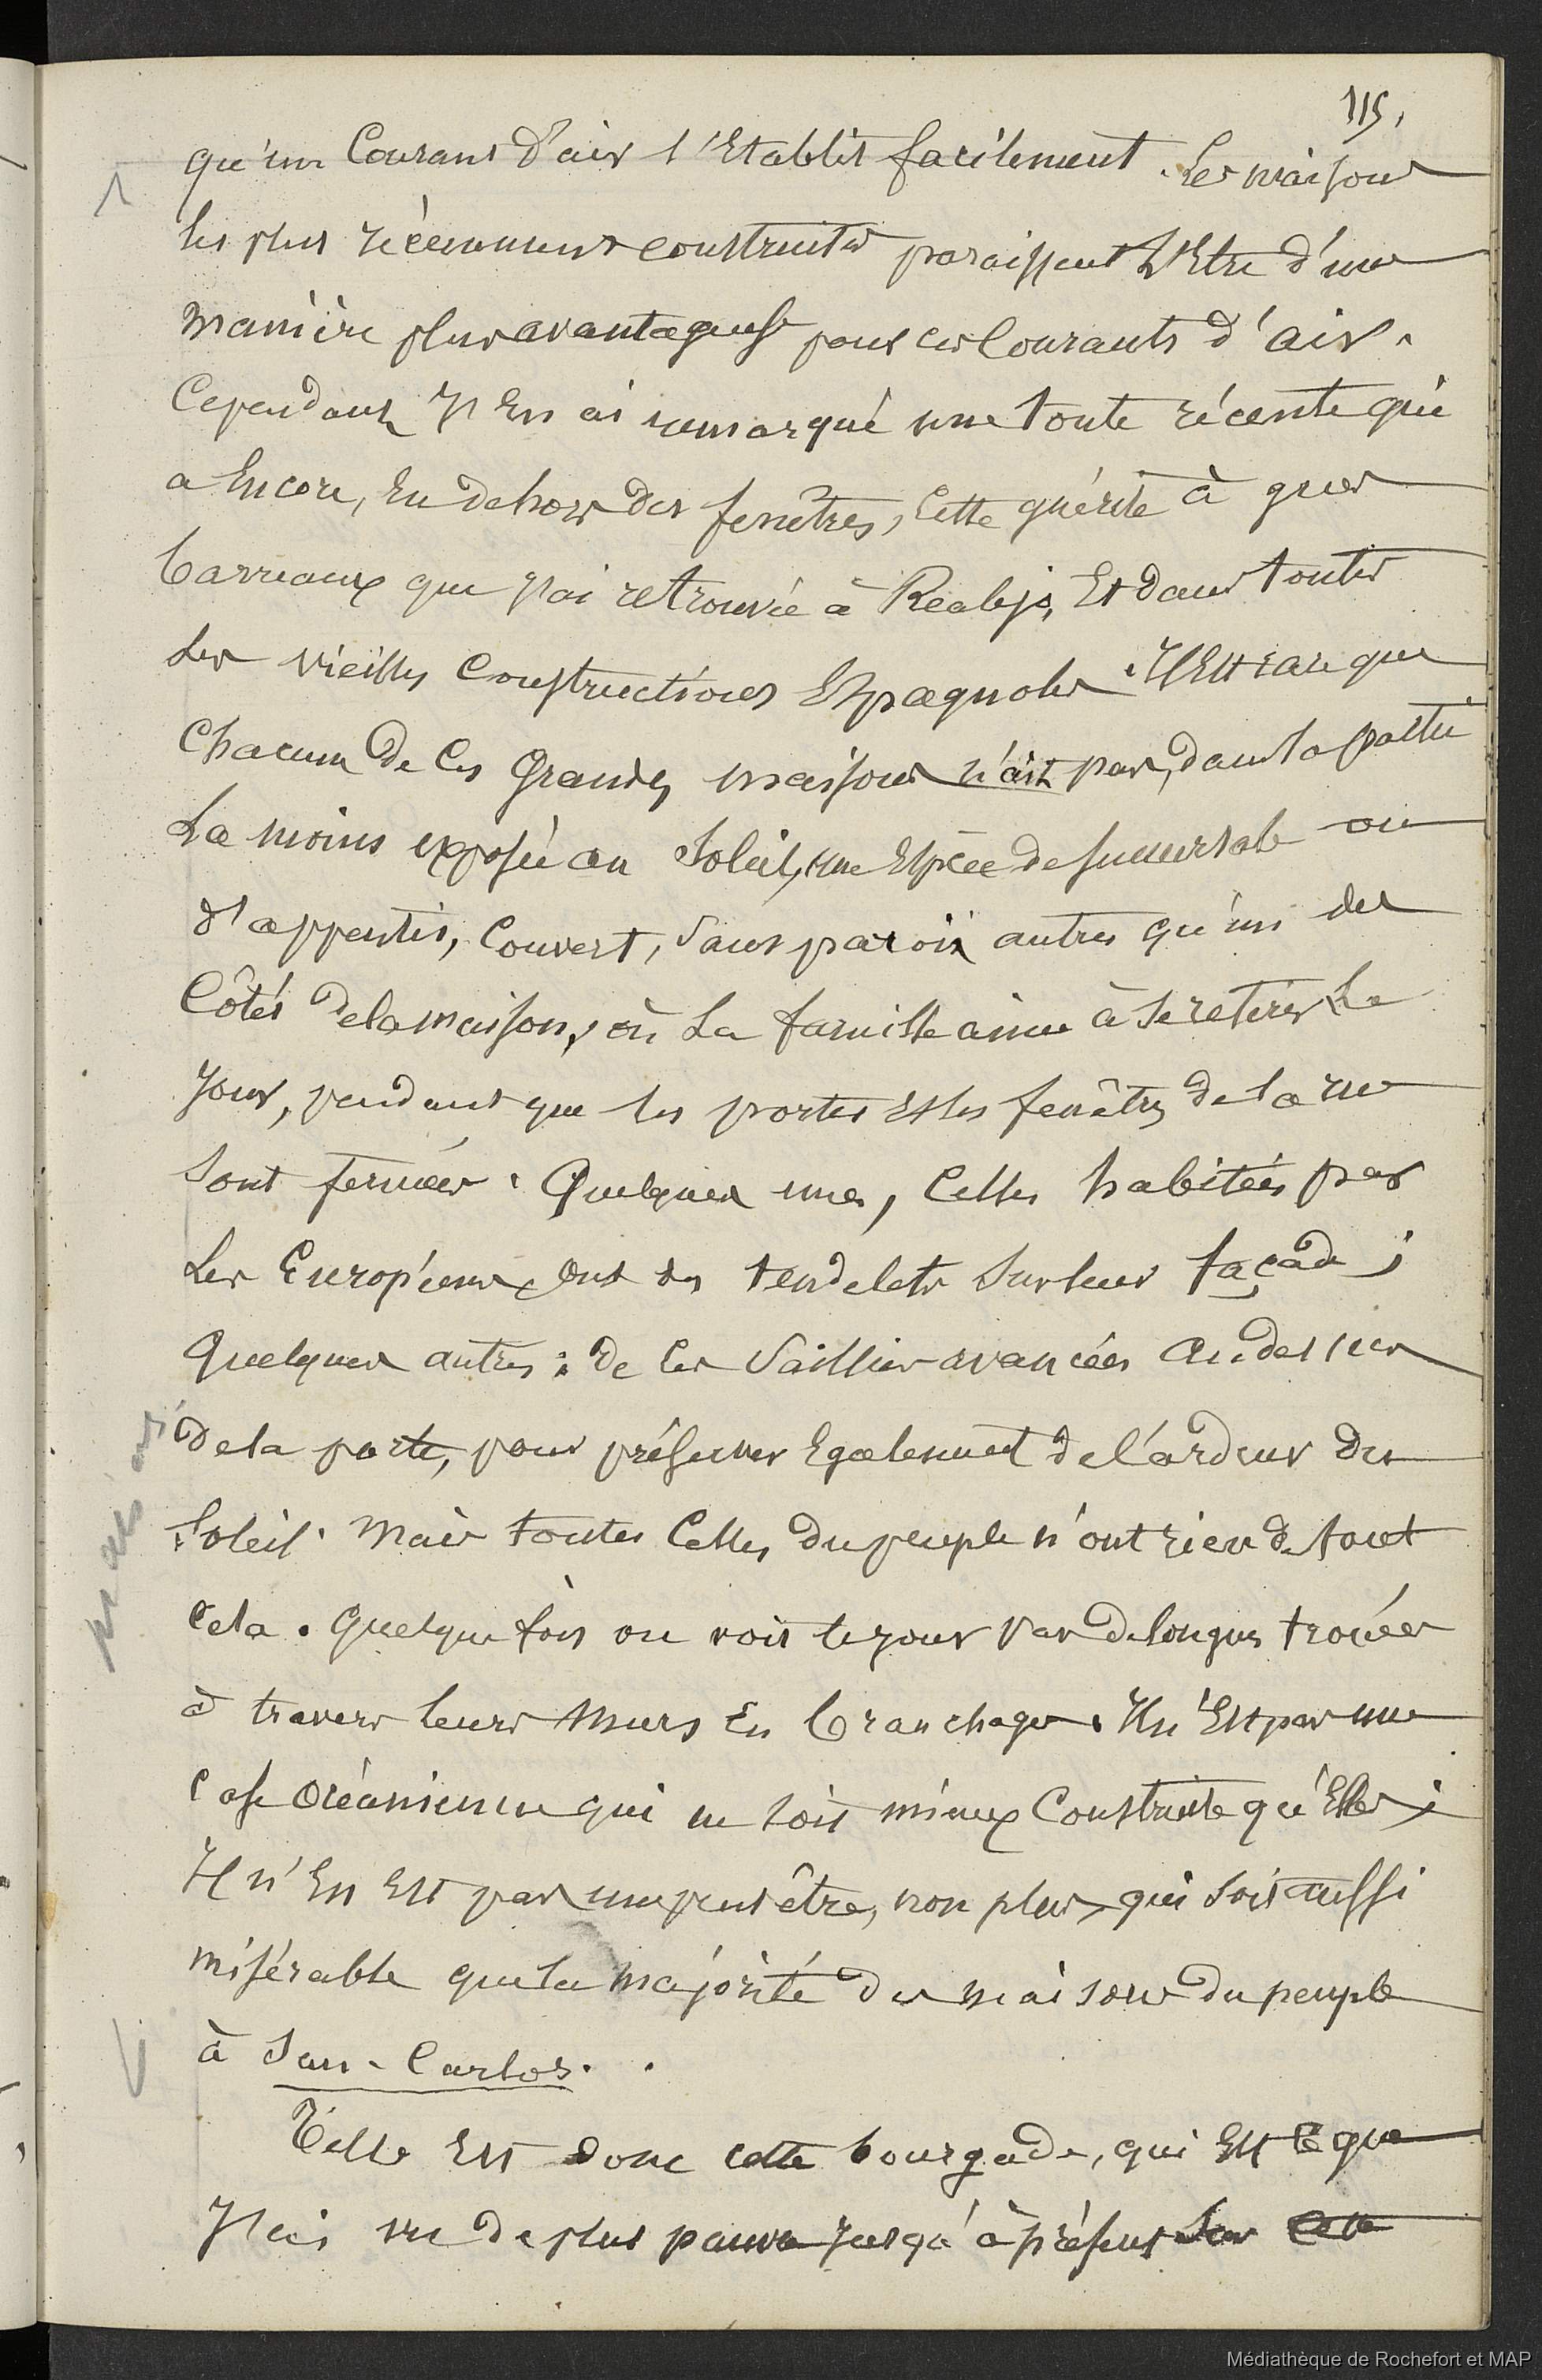 115.
qu'un Courant d'air s'Etablit facilement. Les maisons
les plus récemment construites paraissent L'Etre d'une
manière plus avantageuse pour ces Courants d'air.
Cependant J'En ai remarqué une toute récente qui
a Encore, En dehors des fenêtres, Cette guérite à gros
barreaux que j'ai retrouvée à Realejo, Et dans toutes
Les vieilles Constructions Espagnoles. Il Est rare que
Chacune de Ces Grandes maisons n'ait pas, dans la partie
La moins exposée au Soleil, une Espèce de succursale ou
d'appentis, Couvert, Sans parois autres qu'un des
Côtés de la maison, où La famille aime à se retirer Le
Jour, pendant que les portes et les fenêtres de la rue
Sont fermées. Quelques unes, Celles habitées par
Les Européens, Ont des tendelets Sur leur façade;
Quelques autres: de Ces Saillies avancées Au dessus
de la porte, pour préserver Egalement de l'ardeur du
Soleil. Mais toutes Celles du peuple n'ont rien de tout
Cela. Quelquefois on voit le jour par de longues trouées
à travers leurs Murs En branchages. Il n'Est pas une
Case Océanienne qui ne soit mieux Construite qu'Elles;
Il n'En Est pas une peut être, non plus, qui soit aussi
misérable que la majorité des maisons du peuple
à San-Carlos.
Telle Est donc cette bourgade, qui Est Ce que
J'ai vu de plus pauvre jusqu'à présent Sur Cette
Médiathèque de Rochefort et MAP